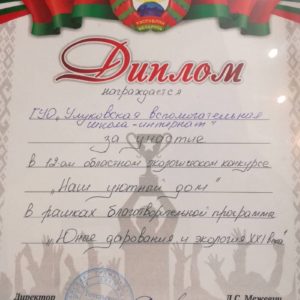 РЕСПУБЛИКА
БЕЛАРУСЬ
Диплом
награждается
ГУО „Улуковская вспомогательная
школа-интернат"
за участие
в 12-ом областном экологическом конкурсе
„Наш уютный дом"
в рамках благотворительной программы
„Юные дарования и экология XXI века"
Директор
Л.С.